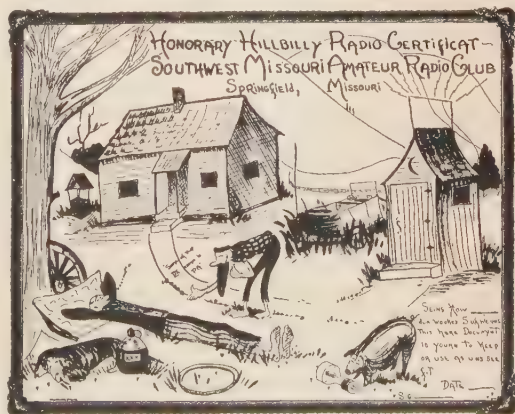 Honorary Hillbilly Radio Certificat~
Southwest Missouri Amateur Radio Club
Springfield, Missouri
Seins How
this here Document
is yours to Keep
or use as uns see
fit
Date